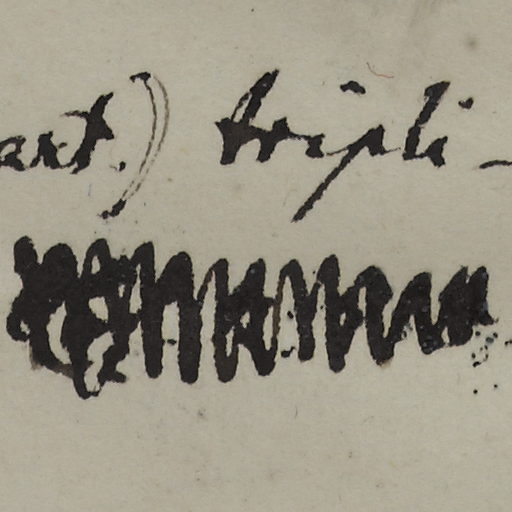 art.) tripli-